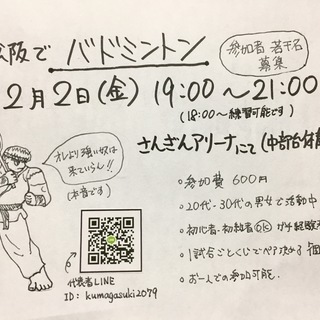 松阪で バドミントン
参加者 若干名
募集
2月2日(金) 19:00〜21:00
(18:00〜練習可能です)
さんぎんアリーナにて(中部台体育
オレより強い奴は
来ていらん!!
(本音です)
・参加費 600円
・20代・30代の男女で活動中
・初心者・初級者OK ガチ経験
・1試合ごとくじでペア決める
・お一人での参加可能。
代表者LINE
ID: kumagasuki2079